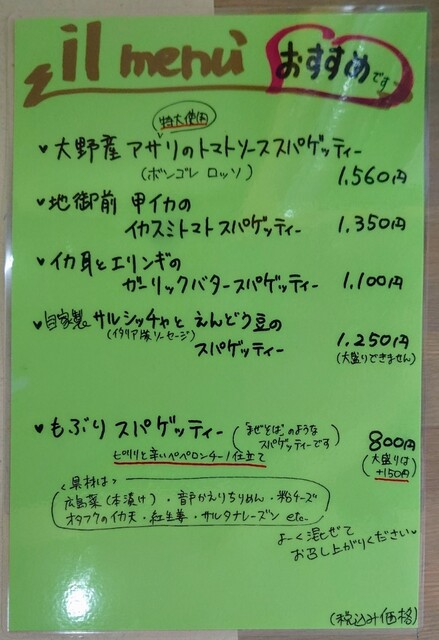 il menu おすすめです
特大使用
♥ 大野産 アサリのトマトソーススパゲッティー
(ボンゴレ ロッソ) 1.560円
♥ 地御前 甲イカの
イカスミトマトスパゲッティー 1.350円
♥ イカ耳とエリンギの
ガーリックバタースパゲッティー 1.100円
♥ 自家製 サルシッチャと えんどう豆の
(イタリア産ソーセージ)
スパゲッティー 1.250円
(大盛りできません)
♥ もぶり スパゲッティー
("まぜそば"のような
スパゲッティーです)
800円
ピリリと辛いペペロンチーノ仕立て
(大盛りは
+150円)
<具材は>
広島菜(本漬け)・音戸かえりちりめん・粉チーズ
オタフクのイカ天・紅生姜・サルタナレーズン etc-
よーく混ぜて
お召し上がりください♥
(税込み価格)